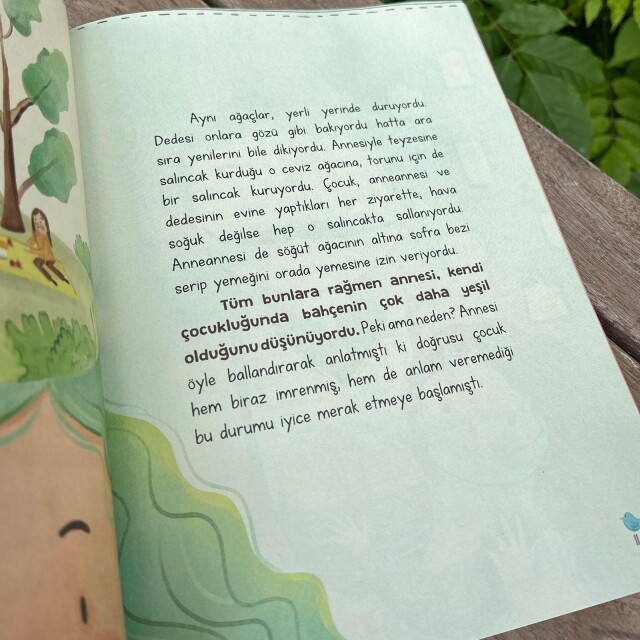 Aynı ağaçlar, yerli yerinde duruyordu.
Dedesi onlara gözü gibi bakıyordu hatta ara
sıra yenilerini bile dikiyordu. Annesiyle teyzesine
salıncak kurduğu o ceviz ağacına, torunu için de
bir salıncak kuruyordu. Çocuk, anneannesi ve
dedesinin evine yaptıkları her ziyarette, hava
soğuk değilse hep o salıncakta sallanıyordu.
Anneannesi de söğüt ağacının altına sofra bezi
serip yemeğini orada yemesine izin veriyordu.
Tüm bunlara rağmen annesi, kendi
çocukluğunda bahçenin çok daha yeşil
olduğunu düşünüyordu. Peki ama neden? Annesi
öyle ballandırarak anlatmıştı ki doğrusu çocuk
hem biraz imrenmiş, hem de anlam veremediği
bu durumu iyice merak etmeye başlamıştı.
11